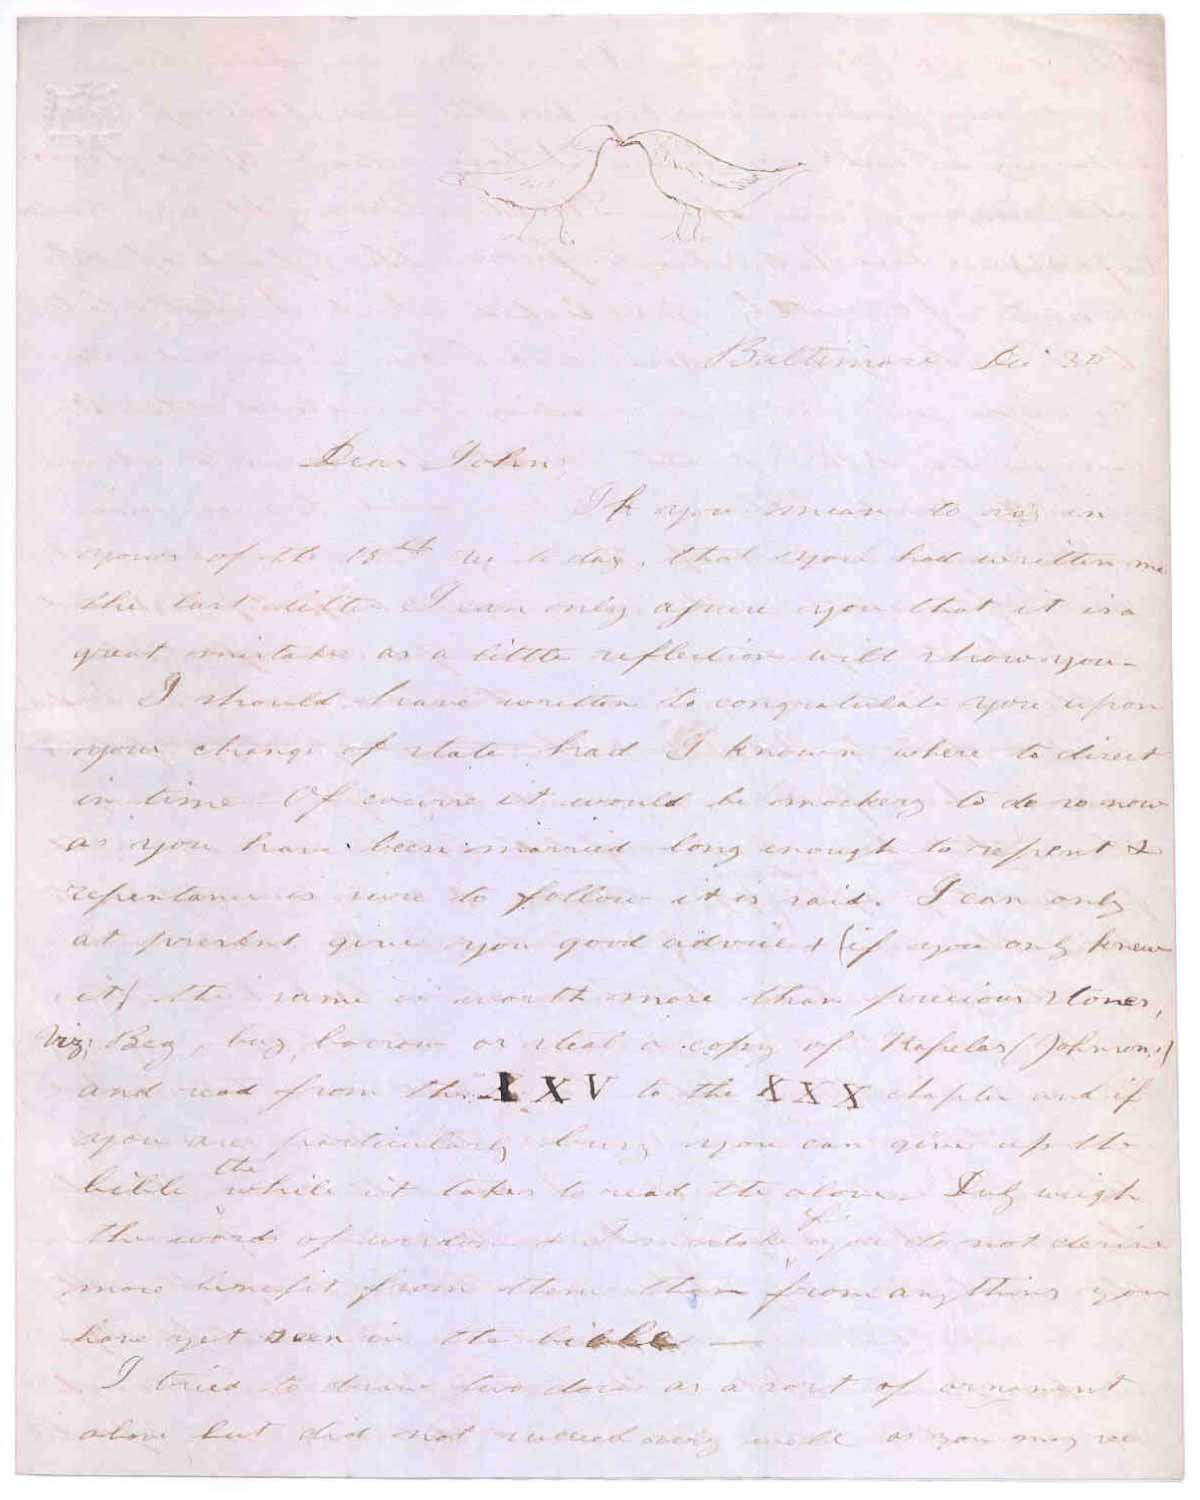 Baltimore Dec 30
Dear John,
If you mean to say in
yours of the 18th rec to day, that you had written me
the last letter I can only assure you that it is a
great mistake as a little reflection will show you-
I should have written to congratulate you upon
your change of state had I known where to direct
in time. Of course it would be mockery to do so now
as you have been married long enough to repent &
repentance is sure to follow it is said. I can only
at present give you good advice & (if you only knew
it) the same is worth more than precious stones,
viz; Beg, buy, borrow or steal a copy of (Johnson's)
and read from the XXV to the XXX chapter and if
you are particularly busy you can give up the
bible the while it takes to read the above. Duly weigh
the words of wisdom & I mistake if you do not derive
more benefit from them than from anything you
have yet seen in the bible —
I tried to draw two doves as a sort of ornament
above but did not succeed very well as you may see